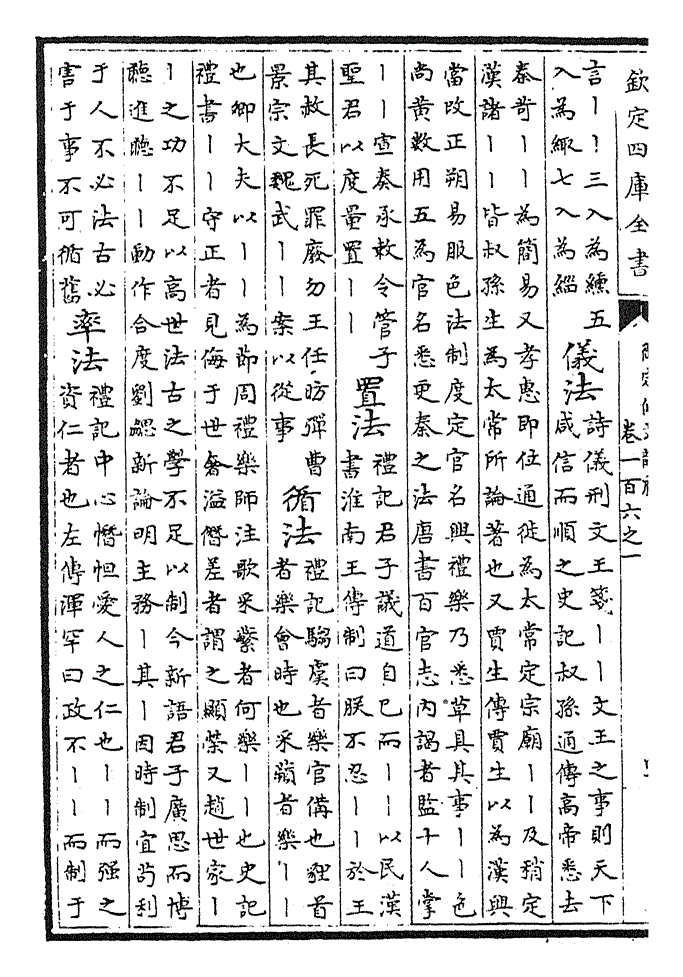 欽定四庫全書
卷一百六之一
言｜｜三入為纁五
入為緅七入為緇
儀法
詩儀刑文王箋｜｜文王之事則天下
咸信而順之史記叔孫通傳高帝悉去
秦苛｜｜為簡易又孝惠即位通徙為太常定宗廟｜｜及稍定
漢諸｜｜皆叔孫生為太常所論著也又賈生傳賈生以為漢興
當改正朔易服色法制度定官名興禮樂乃悉草具其事｜｜色
尚黃數用五為官名悉更秦之法唐書百官志內謁者監十人掌
｜｜宣奏承敕令管子
聖君以度量置｜｜
置法
禮記君子議道自已而｜｜以民漢
書淮南王傳制曰朕不忍｜｜於王
其赦長死罪廢勿王任昉彈曹
景宗文魏武｜｜案以從事
循法
禮記騶虞者樂官備也貍首
者樂會時也采蘋者樂｜｜
也卿大夫以｜｜為節周禮樂師注歌采蘩者何樂｜｜也史記
禮書｜｜守正者見侮于世奢溢僭差者謂之顯榮又趙世家｜
｜之功不足以高世法古之學不足以制今新語君子廣思而博
聽進聽｜｜動作合度劉勰新論明主務｜其｜因時制宜茍利
于人不必法古必
害于事不可循舊
率法
禮記中心憯怛愛人之仁也｜｜而强之
資仁者也左傳渾罕曰政不｜｜而制于